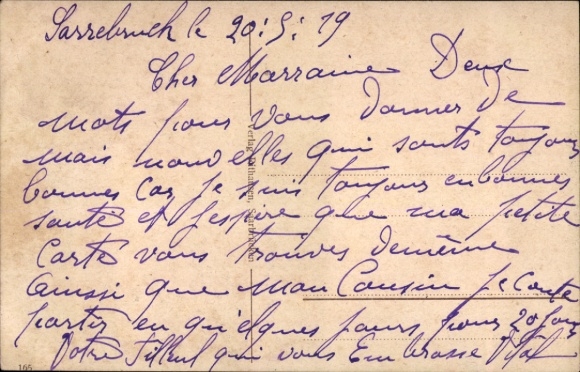 Sarrebruck le 20:5:19
Cher Marraine Deux
mots pour vous donner de
mais nouvelles qui sonts toujours
bonnes car je suis toujours en bonnes
santé et j'espère que ma petite
carte vous trouves demême
ainssi que mon Cousin je conte
partir en quelques jours pour 20 jours
Votre Filleul qui vous Embrasse
Verlag
165